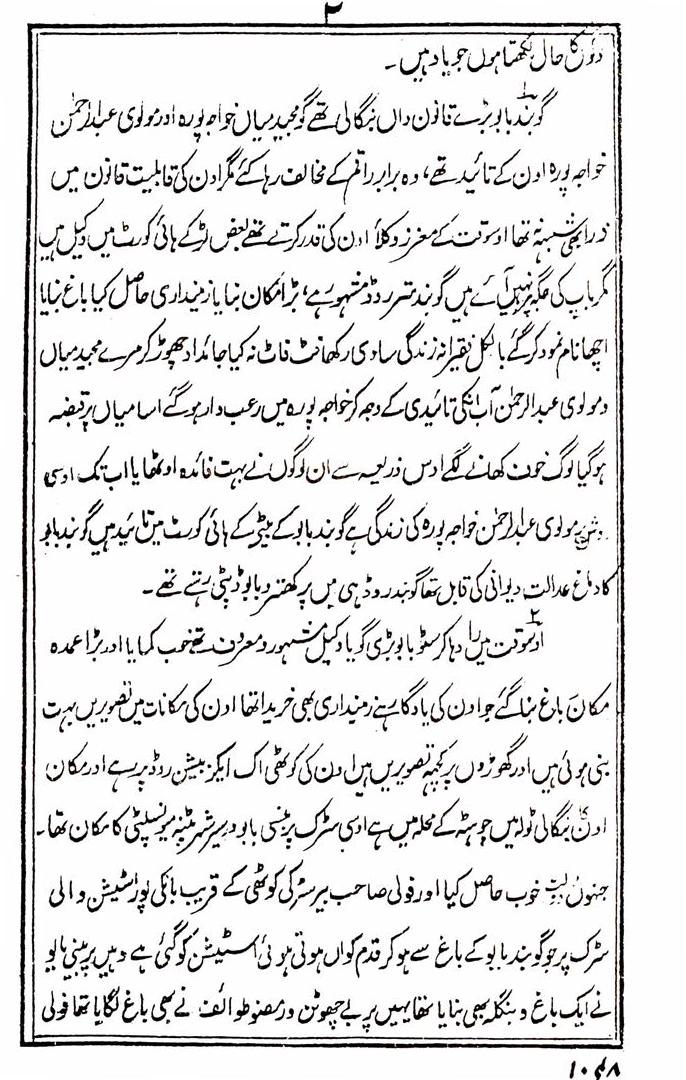 ۲
دنوں کا حال لکھتا ہوں جو یاد ہیں۔
گوبند بابو بڑے قانون داں بنگالی تھے گو مجید میاں خواجہ پورہ اور مولوی عبدالرحمٰن
خواجہ پورہ اون کے تائید تھے، وہ برابر راقم کے مخالف رہا کئے مگر اون کی قابلیت قانون میں
ذرا بھی شبہہ نہ تھا اوسوقت کے معزز وکلاء اون کی قدر کرتے تھے بعض لڑکے ہائی کورٹ میں وکیل ہیں
مگر باپ کی جگہ پر نہیں آئے ہیں گوبند متر روڈ مشہور ہے، بڑا مکان بنایا زمینداری حاصل کیا باغ بنایا
اچھا نام نمود کر گئے بالکل فقیرانہ زندگی سادی رکھا فٹ فاٹ نہ کیا جائداد چھوڑ کر مرے مجید میاں
و مولوی عبدالرحمٰن آب انکی تائیدی کے وجہ کر خواجہ پورہ میں رعب دار ہوگئے اسامیاں پر قبضہ
ہوگیا لوگ خون کھانے لگے اوس ذریعہ سے ان لوگوں نے بہت فائدہ اوٹھایا اب تک اوسی
روش پر مولوی عبدالرحمٰن خواجہ پورہ کی زندگی ہے گوبند بابو کے بیٹے کے ہائی کورٹ میں تائید ہیں گوبند بابو
کا دماغ عدالت دیوانی کی قابل تھا گوبند روڈ ہی میں پر کھنتر و بابو ڈپٹی رہتے تھے۔
۲ اوسوقت میں را دہا کرسٹو بابو بڑی گویا وکیل مشہور و معروف تھے خوب کمایا اور بڑا عمدہ
مکان باغ بنا گئے جو اون کی یادگا ہے زمینداری بھی خریدا تھا اون کی مکانات میں تصویریں بہت
بنی ہوئی ہیں اور گھوڑوں پر کچھہ تصویریں ہیں اون کی کوٹھی اک ایکزبیشن روڈ پر ہے اور مکان
اون کا بنگالی ٹولہ میں چوہٹہ کے محلہ میں ہے اوسی سڑک پر بنسی بابو ورسیر شہر پٹنہ میونسپلٹی کا مکان تھا۔
جنہوں دولت خوب حاصل کیا اور فولی صاحب بیرسٹر کی کوٹھی کے قریب بانکی پور اسٹیشن والی
سڑک پر جو گوبند بابو کے باغ سے ہو کر قدم کواں ہوتی ہوئی اسٹیشن کو گئی ہے وہیں پر بنسی بابو
نے ایک باغ و بنگلہ بھی بنایا تھا یہیں پر بے چھوٹن و رمضنو طوائف نے بھی باغ لگایا تھا فولی